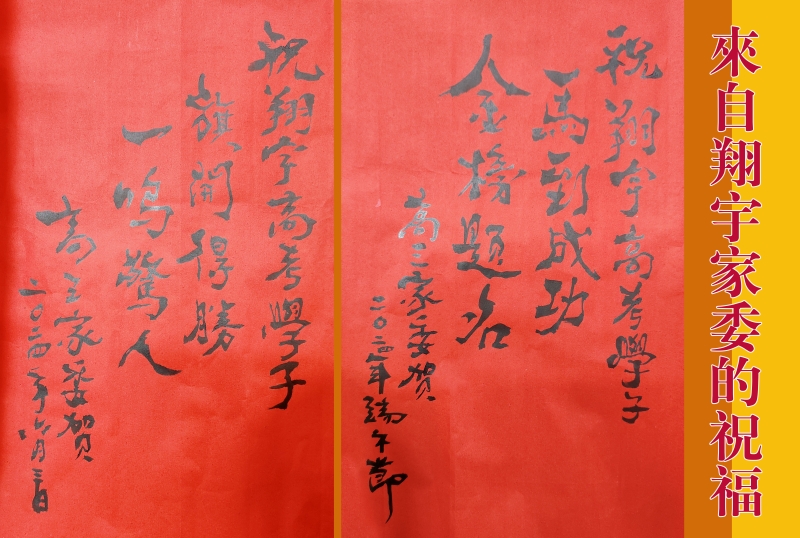 來自翔宇家委的祝福
祝翔宇高考學子
一馬到成功
人金榜題名
高三家委賀
二〇二四年端午節
祝翔宇高考學子
旗開得勝
一鳴驚人
高三家委賀
二〇二四年六月三日